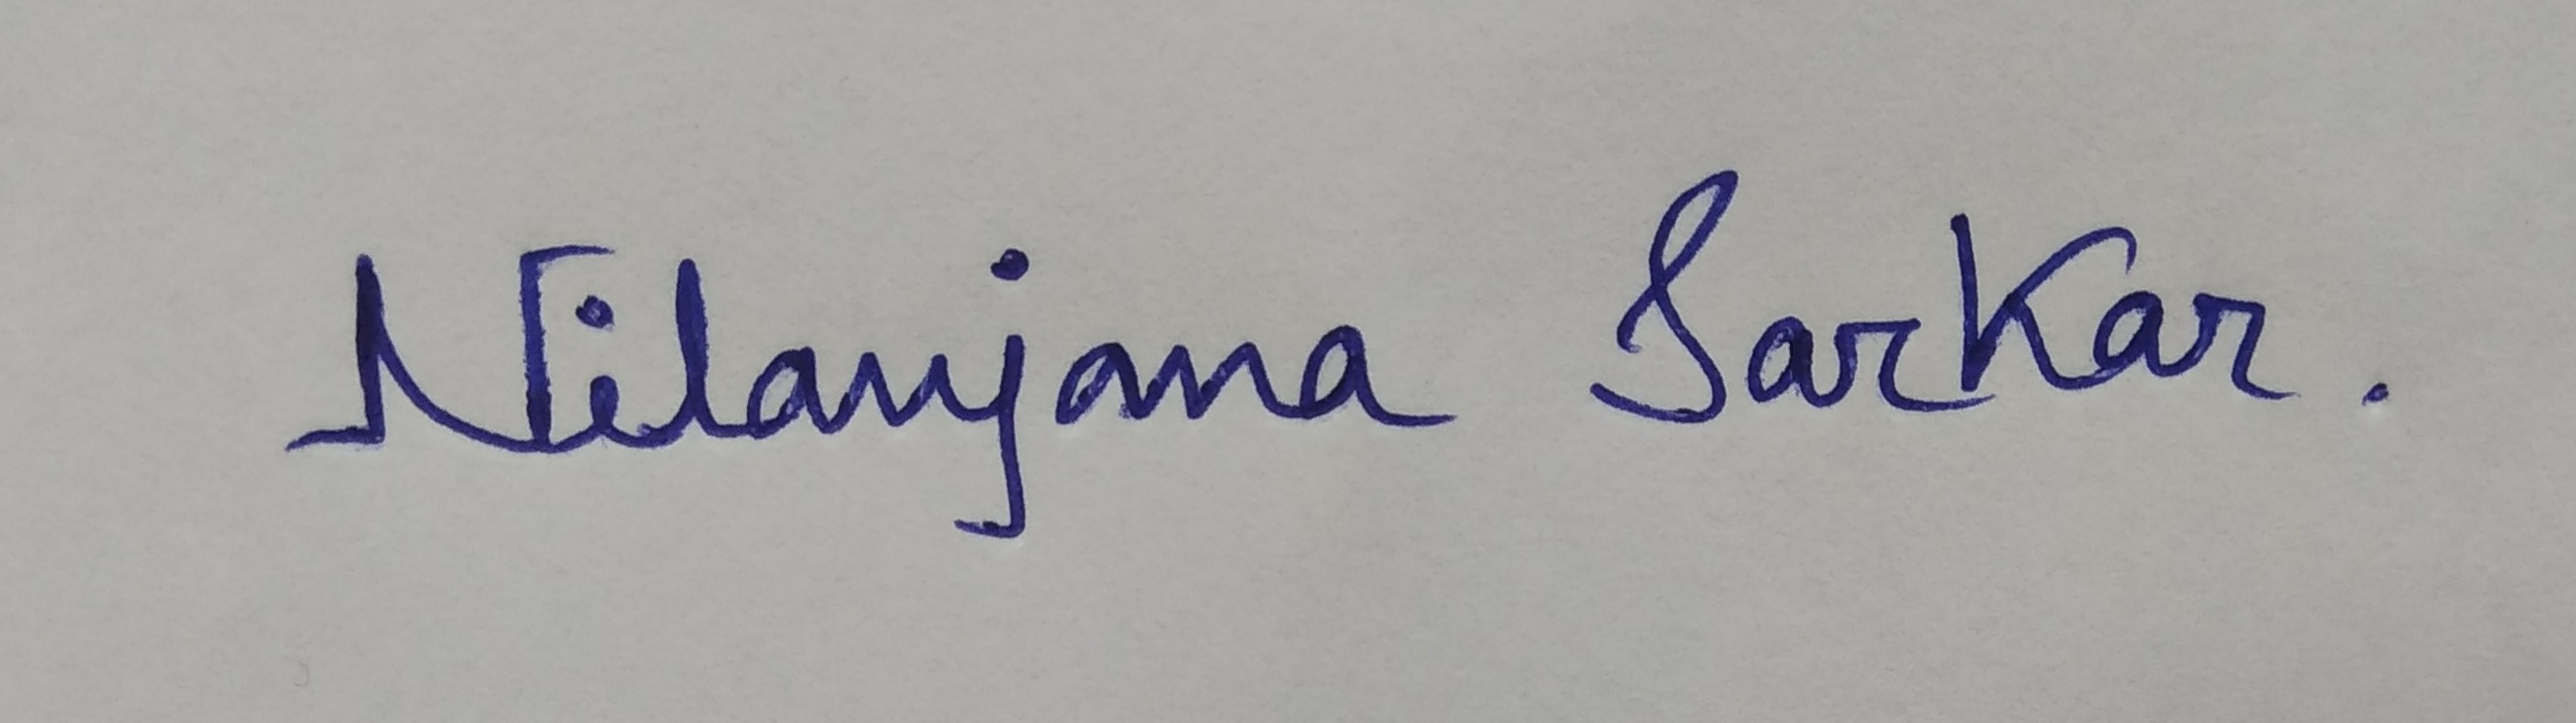 Nilanjana Sarkar.